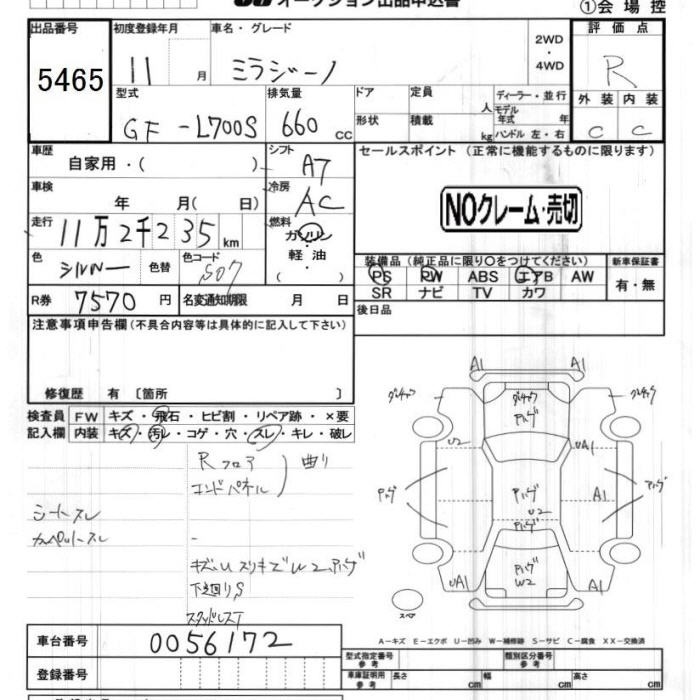 オークション出品申込書
①会場控
出品番号 初度登録年月 車名・グレード 2WD ・ 4WD 評価点
5465 11 月 ミラジーノ R
型式 排気量 ドア 定員 人 ディーラー・並行 外装 内装
GF-L700S 660 cc 形状 積載 kg モデル年式 年 ハンドル 左・右 C C
車歴 自家用・( ) シフト A7 セールスポイント (正常に機能するものに限ります)
車検 年 月( 日) 冷房 AC
NOクレーム・売切
走行 11万2千235 km 燃料 ガソリン
軽油
( )
色 シルバー 色替 色コード S07
装備品 (純正品に限り○をつけてください) 新車保証書
PS PW ABS エアB AW 有・無
SR ナビ TV カワ
R券 7570 円 名変通知期限 月 日
後日品
注意事項申告欄(不具合内容等は具体的に記入して下さい)
修復歴 有 〔箇所 〕
検査員 FW キズ・飛石・ヒビ割・リペア跡・×要
記入欄 内装 キズ・汚レ・コゲ・穴・スレ・キレ・破レ
Rフロア
エンドパネル 曲り
シートスレ
カーペットスレ
下廻りS
スタッドレスT
A1 A1
U2 UA1
A1
U2
W2
UA1 A1
スペア
A-キズ E-エクボ U-凹み W-補修跡 S-サビ C-腐食 XX-交換済
車台番号 0056172
型式指定番号 参考 類別区分番号 参考
登録番号 車庫証明用 参考 長さ cm 幅 cm 高さ cm